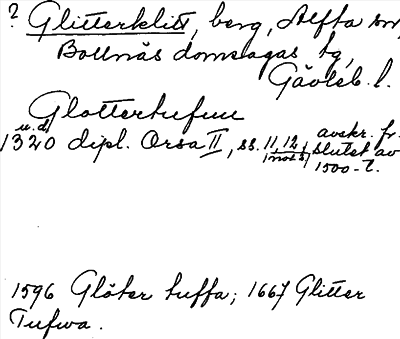 ? Glitterklitt, berg, Alfta sn,
Bollnäs domsagas tg,
Gävleb. l.
Glottertufuu
u.d.
1320 dipl. Orsa II, ss. 11, 12, avskr. fr.
slutet av
1500-t.
1596 Glöter tuffa; 1667 Glitter
Tufwa.